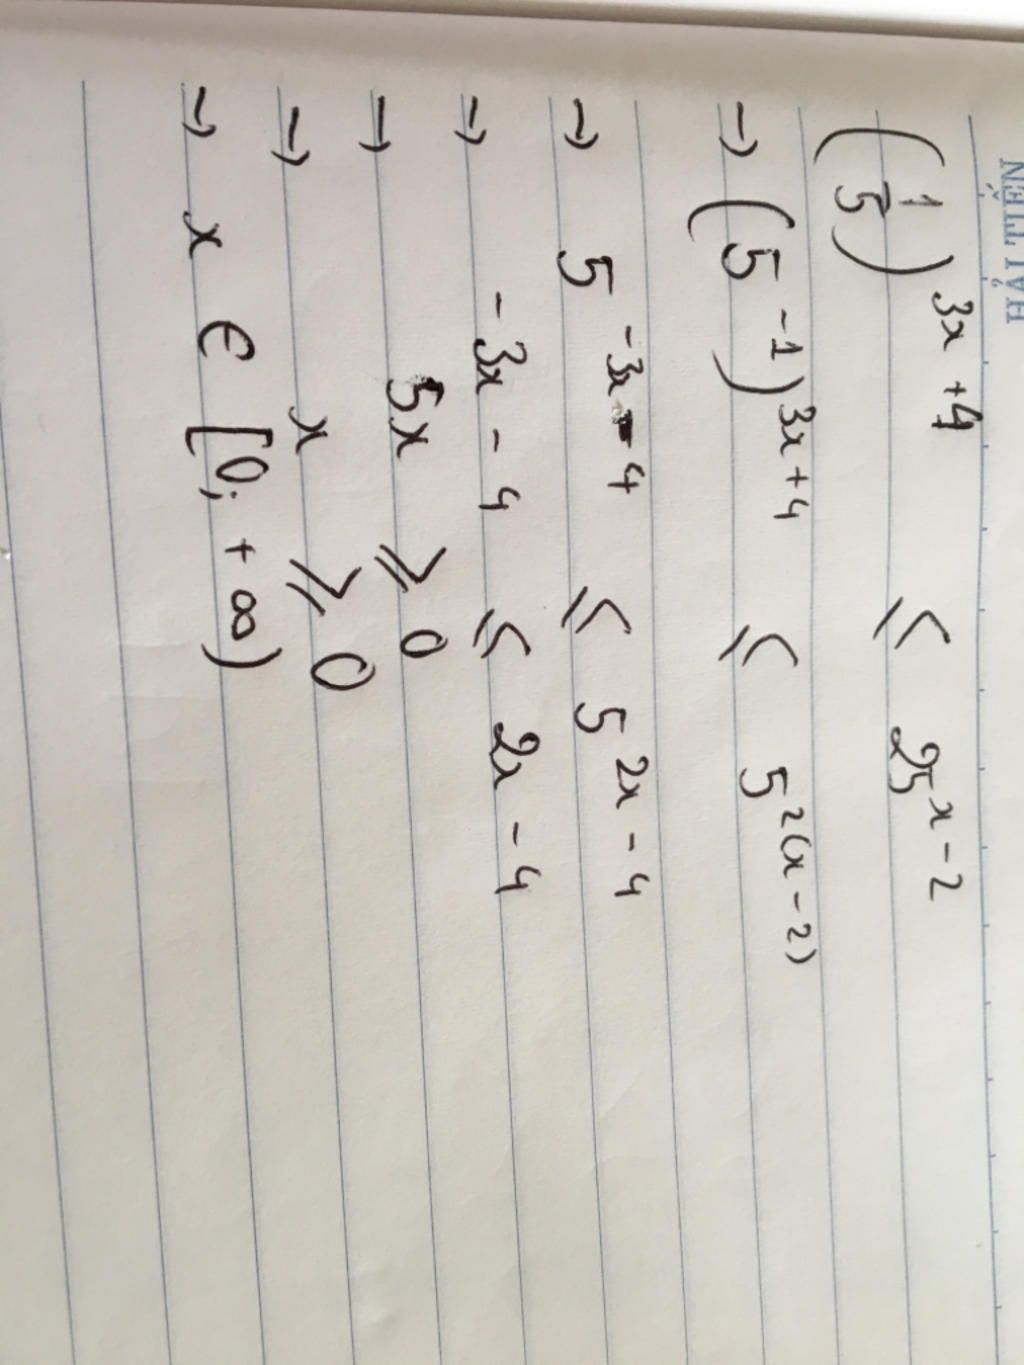 (1/5)^(3x+4) ≤ 25^(x-2)
→ (5^(-1))^(3x+4) ≤ 5^(2(x-2))
→ 5^(-3x-4) ≤ 5^(2x-4)
→ -3x-4 ≤ 2x-4
→ 5x ≥ 0
→ x ≥ 0
→ x ∈ [0; +∞)